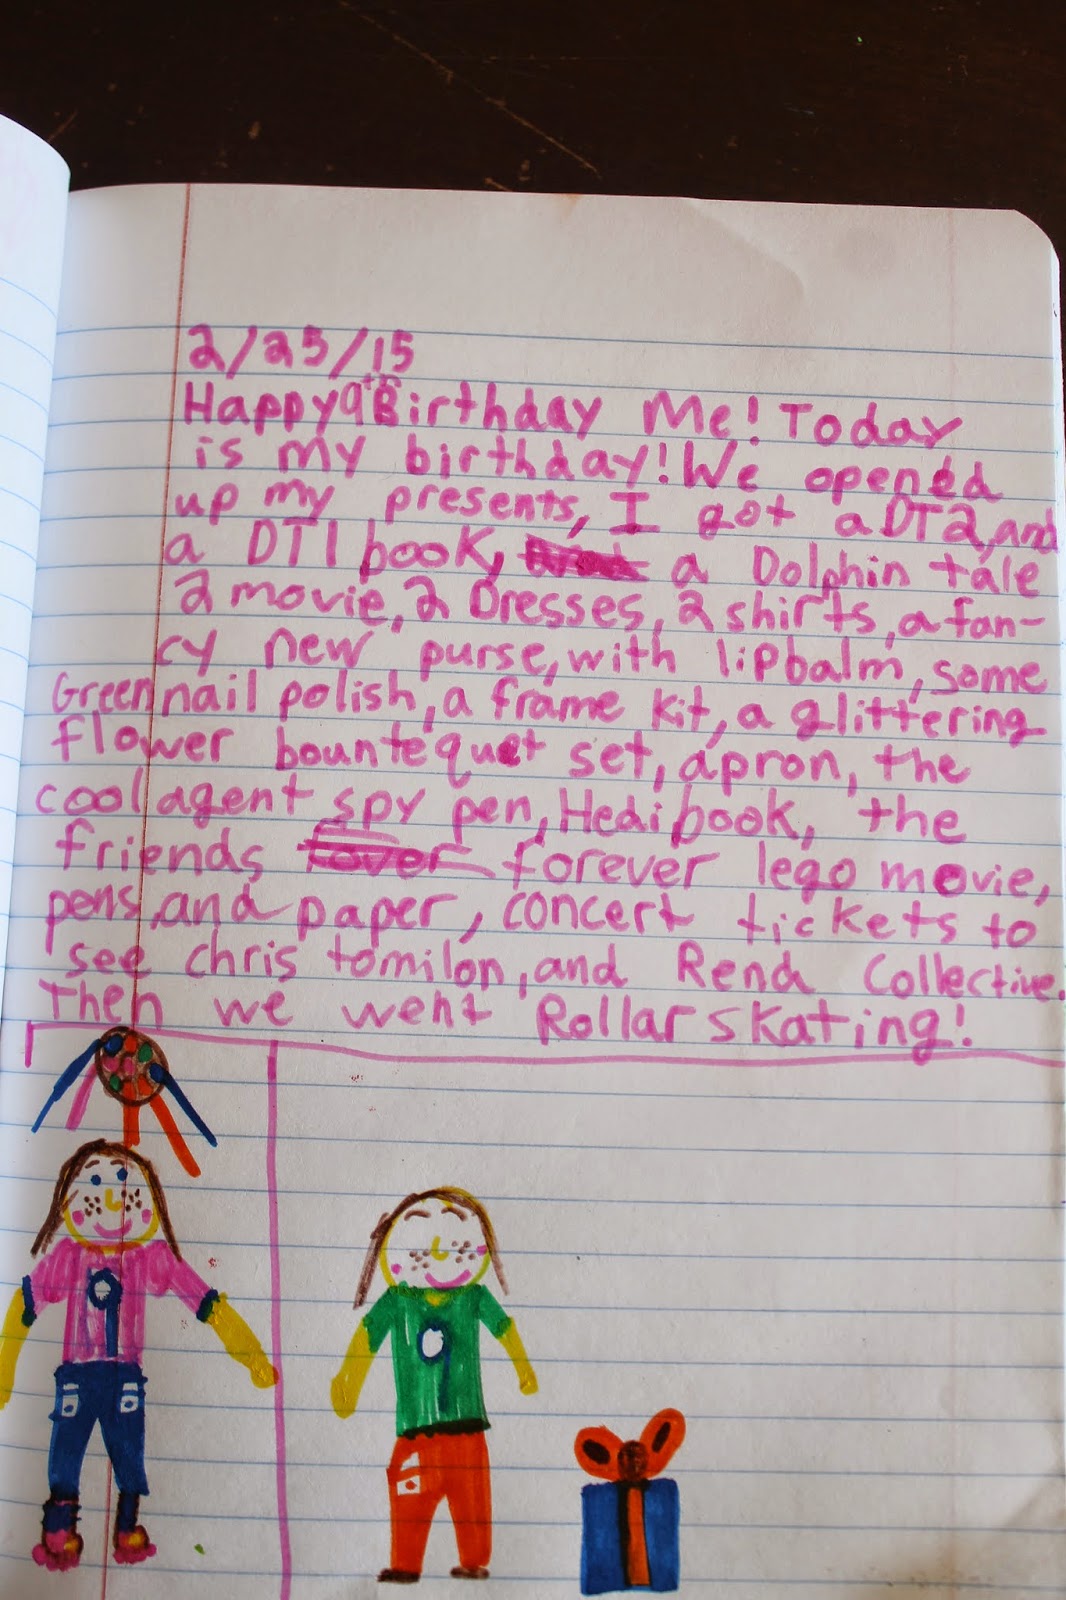 2/25/15
Happy 9th Birthday Me! Today
is my birthday! We opened
up my presents, I got a DT2, and
a DT1 book, a Dolphin tale
2 movie, 2 Dresses, 2 shirts, a fan-
cy new purse, with lipbalm, some
Green nail polish, a frame kit, a glittering
flower bountequet set, apron, the
cool agent spy pen, Hedi book, the
friends forever lego movie,
pens, and paper, concert tickets to
see chris tomilon, and Rend Collective.
Then we went Rollar skating!
9
9